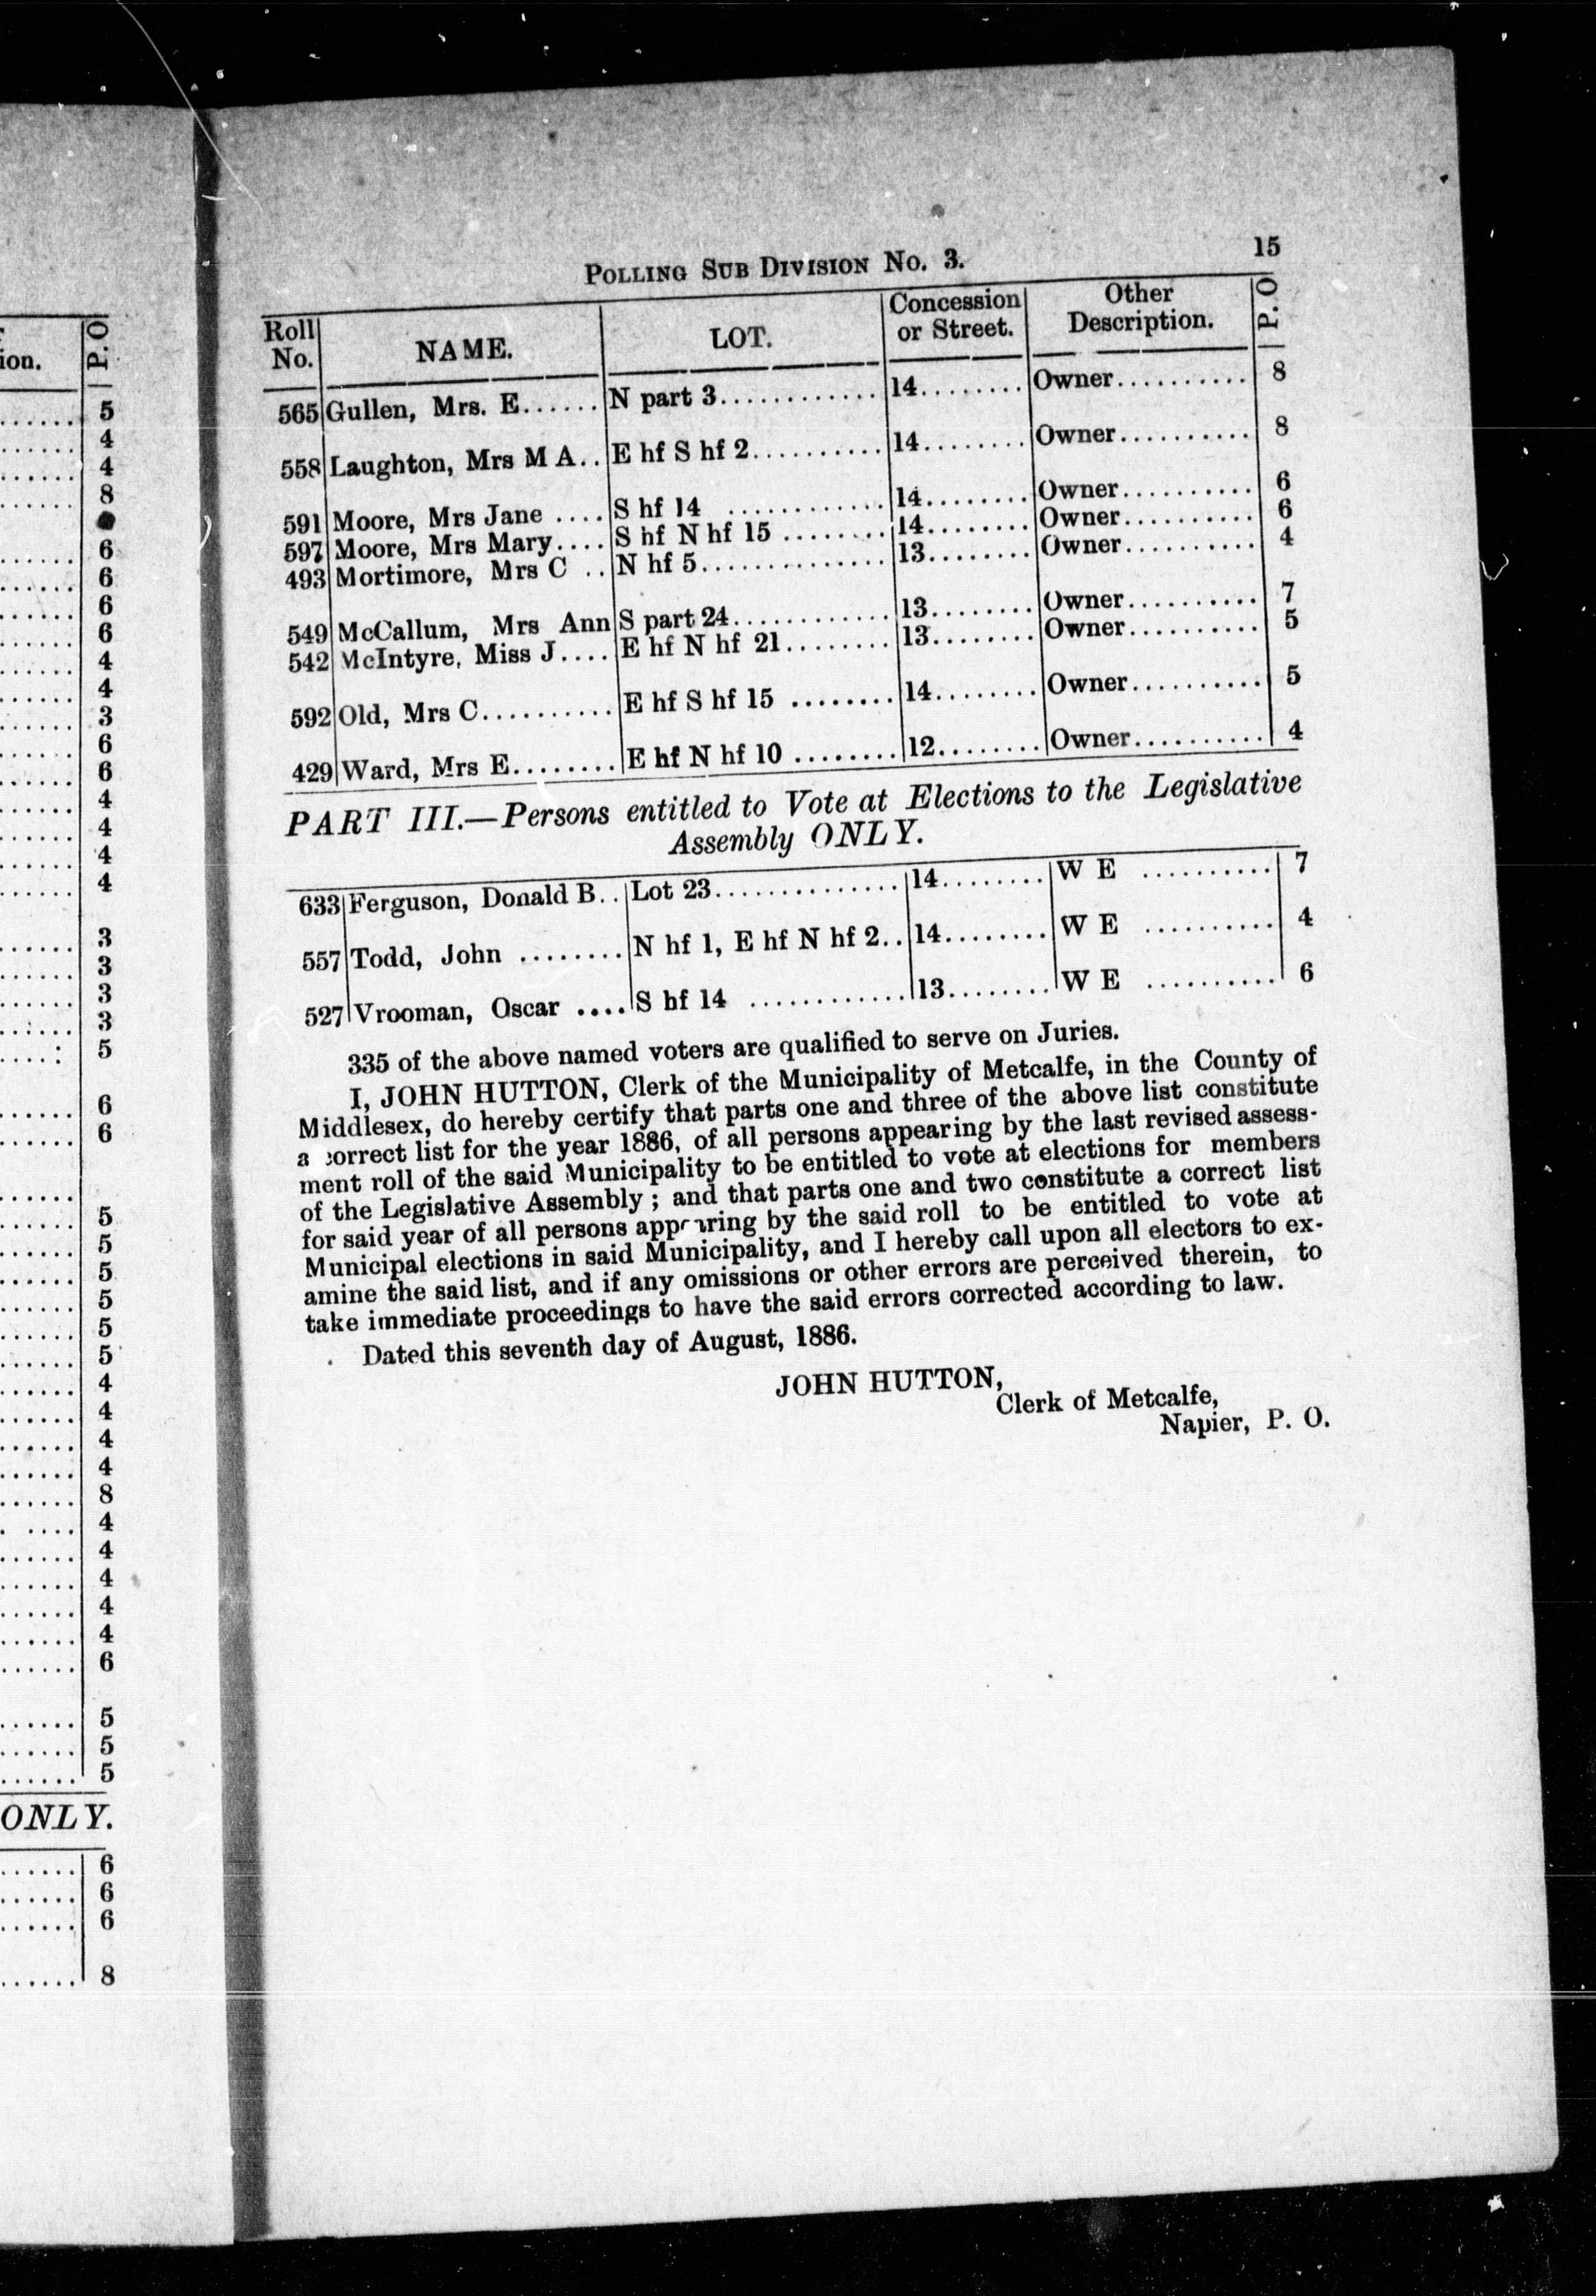 ion.
P. O
5
4
4
8
6
6
6
6
4
4
3
6
6
4
4
4
4
3
3
3
3
5
6
6
5
5
5
5
5
5
4
4
4
4
8
4
4
4
4
4
6
5
5
5
ONLY.
6
6
6
8
POLLING SUB DIVISION No. 3. 15
Roll No. NAME. LOT. Concession or Street. Other Description. P. O
565 Gullen, Mrs. E...... N part 3............ 14........ Owner.......... 8
558 Laughton, Mrs M A.. E hf S hf 2.......... 14........ Owner.......... 8
591 Moore, Mrs Jane .... S hf 14 ............ 14........ Owner.......... 6
597 Moore, Mrs Mary.... S hf N hf 15 ........ 14........ Owner.......... 6
493 Mortimore, Mrs C .. N hf 5.............. 13........ Owner.......... 4
549 McCallum, Mrs Ann S part 24............ 13........ Owner.......... 7
542 McIntyre, Miss J.... E hf N hf 21........ 13........ Owner.......... 5
592 Old, Mrs C.......... E hf S hf 15 ........ 14........ Owner.......... 5
429 Ward, Mrs E........ E hf N hf 10 ........ 12........ Owner.......... 4
PART III.—Persons entitled to Vote at Elections to the Legislative
Assembly ONLY.
633 Ferguson, Donald B.. Lot 23.............. 14........ W E .......... 7
557 Todd, John ........ N hf 1, E hf N hf 2.. 14........ W E .......... 4
527 Vrooman, Oscar .... S hf 14 ............ 13........ W E .......... 6
335 of the above named voters are qualified to serve on Juries.
I, JOHN HUTTON, Clerk of the Municipality of Metcalfe, in the County of
Middlesex, do hereby certify that parts one and three of the above list constitute
a correct list for the year 1886, of all persons appearing by the last revised assess-
ment roll of the said Municipality to be entitled to vote at elections for members
of the Legislative Assembly ; and that parts one and two constitute a correct list
for said year of all persons appearing by the said roll to be entitled to vote at
Municipal elections in said Municipality, and I hereby call upon all electors to ex-
amine the said list, and if any omissions or other errors are perceived therein, to
take immediate proceedings to have the said errors corrected according to law.
Dated this seventh day of August, 1886.
JOHN HUTTON,
Clerk of Metcalfe,
Napier, P. O.